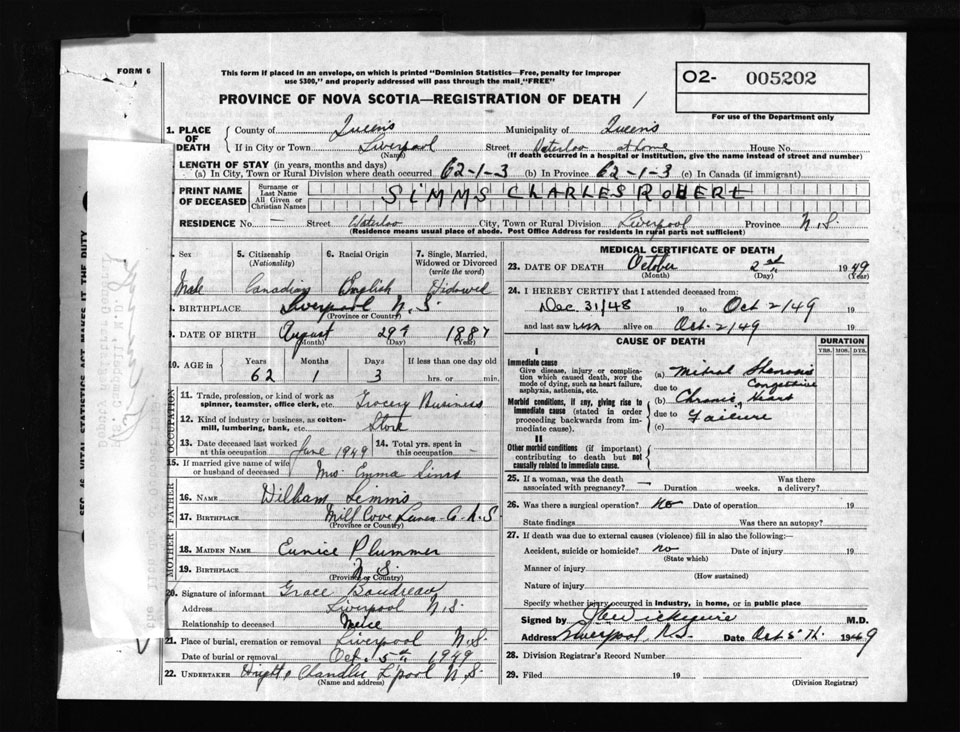 FORM 6
This form if placed in an envelope, on which is printed "Dominion Statistics—Free, penalty for improper
use $300," and properly addressed will pass through the mail "FREE"
O2- 005202
PROVINCE OF NOVA SCOTIA—REGISTRATION OF DEATH
For use of the Department only
1. PLACE OF DEATH
County of Queens Municipality of Queens
If in City or Town Liverpool Street Waterloo at home House No.
(Name) (If death occurred in a hospital or institution, give the name instead of street and number)
LENGTH OF STAY (in years, months and days)
(a) In City, Town or Rural Division where death occurred 62-1-3 (b) In Province 62-1-3 (c) In Canada (if immigrant)
PRINT NAME OF DECEASED
Surname or Last Name
All Given or Christian Names
SIMMS CHARLES ROBERT
RESIDENCE No. — Street Waterloo City, Town or Rural Division Liverpool Province N.S.
(Residence means usual place of abode. Post Office Address for residents in rural parts not sufficient)
Sex 5. Citizenship (Nationality) 6. Racial Origin 7. Single, Married, Widowed or Divorced (write the word)
Male Canadian English Widowed
8. BIRTHPLACE Liverpool N.S.
(Province or Country)
9. DATE OF BIRTH August 29 1887
(Month) (Day) (Year)
10. AGE in Years Months Days If less than one day old
62 1 3 hrs. or min.
OCCUPATION
11. Trade, profession or kind of work as
spinner, teamster, office clerk, etc. Grocery Business
12. Kind of industry or business, as cotton-
mill, lumbering, bank, etc. Store
13. Date deceased last worked
at this occupation June 1949
14. Total yrs. spent in
this occupation
15. If married give name of wife
or husband of deceased Mrs. Emma Simms
FATHER
16. NAME William Simms
17. BIRTHPLACE Mill Cove Lunen-Co-N.S
(Province or Country)
MOTHER
18. MAIDEN NAME Eunice Plummer
19. BIRTHPLACE N.S.
(Province or Country)
20. Signature of informant Grace Boudreau
Address Liverpool N.S.
Relationship to deceased Niece
21. Place of burial, cremation or removal Liverpool N.S
Date of burial or removal Oct. 5th 1949
22. UNDERTAKER Chandler L'pool N.S.
(Name and address)
MEDICAL CERTIFICATE OF DEATH
23. DATE OF DEATH October 2nd 1949
(Month) (Day) (Year)
24. I HEREBY CERTIFY that I attended deceased from:
Dec. 31/48 19 to Oct 2/49 19
and last saw him alive on Oct. 2/49 19
CAUSE OF DEATH DURATION
YRS. MOS. DYS.
I
Immediate cause
Give disease, injury or complica-
tion which caused death, NOT the
mode of dying, such as heart failure,
asphyxia, asthenia, etc.
(a) Mitral Stenosis
due to Congestive
Morbid conditions, if any, giving rise to
immediate cause (stated in order
proceeding backwards from im-
mediate cause).
(b) Chronic Heart
due to Failure
(c)
II
Other morbid conditions (if important)
contributing to death but not
causally related to immediate cause.
25. If a woman, was the death
associated with pregnancy? — Duration weeks. Was there
a delivery?
26. Was there a surgical operation? no Date of operation 19
State findings Was there an autopsy?
27. If death was due to external causes (violence) fill in also the following:—
Accident, suicide or homicide? no Date of injury 19
(State which)
Manner of injury
(How sustained)
Nature of injury
Specify whether injury occurred in industry, in home, or in public place
Signed by M.D.
Address Liverpool, N.S. Date Oct 5th. 1949
28. Division Registrar's Record Number
29. Filed 19
(Division Registrar)